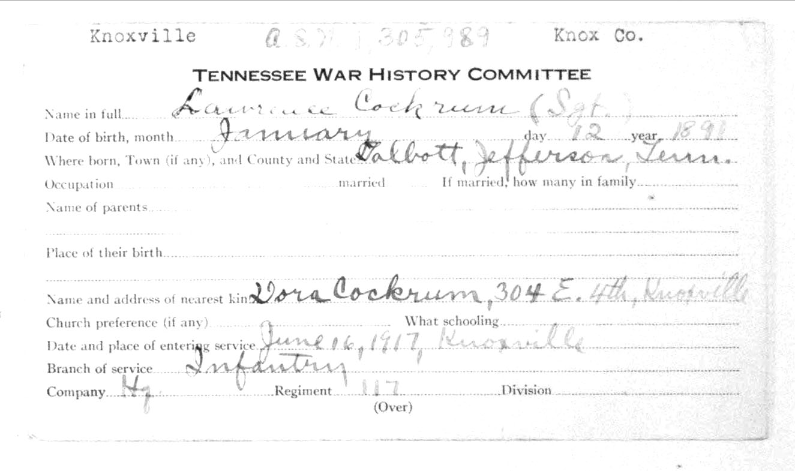 Knoxville A.S.N. 1,305,989 Knox Co.
TENNESSEE WAR HISTORY COMMITTEE
Name in full Lawrence Cockrum (Sgt.)
Date of birth, month January day 12 year 1891
Where born, Town (if any), and County and State Talbott, Jefferson, Tenn.
Occupation married If married, how many in family
Name of parents
Place of their birth
Name and address of nearest kin Dora Cockrum, 304 E. 4th, Knoxville
Church preference (if any) What schooling
Date and place of entering service June 16, 1917, Knoxville
Branch of service Infantry
Company Hq Regiment 117 Division
(Over)